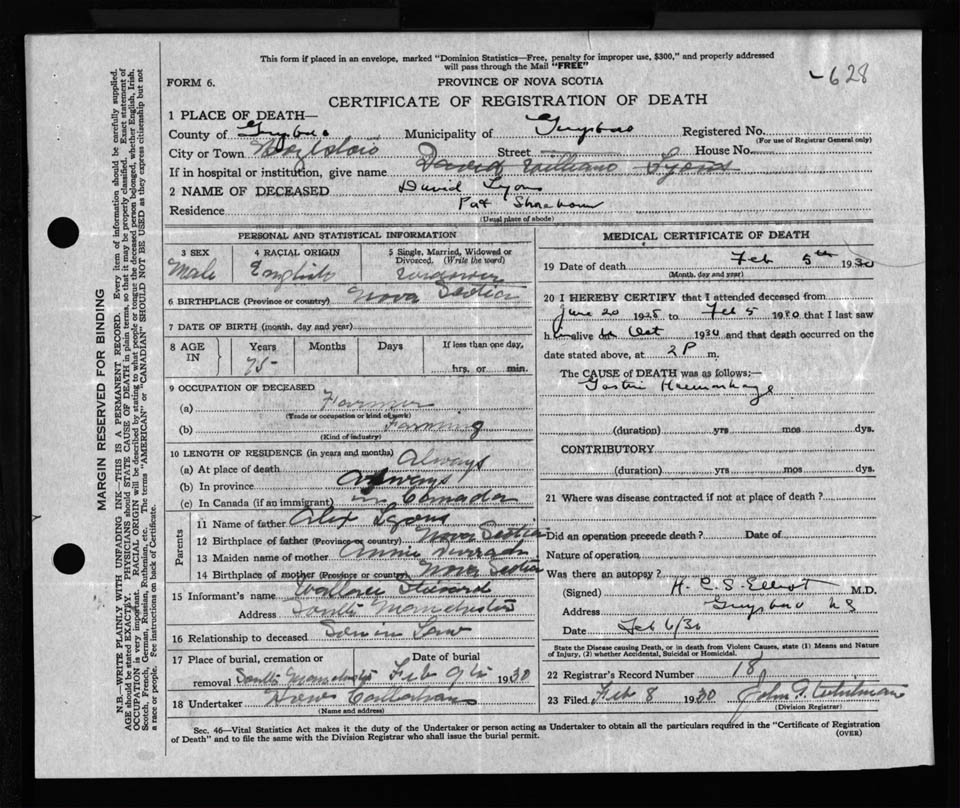 This form if placed in an envelope, marked "Dominion Statistics—Free, penalty for improper use, $300," and properly addressed
will pass through the Mail "FREE"
628
FORM 6.
PROVINCE OF NOVA SCOTIA
CERTIFICATE OF REGISTRATION OF DEATH
1 PLACE OF DEATH—
County of Guysboro Municipality of Guysboro Registered No.
(For use of Registrar General only)
City or Town Street House No.
If in hospital or institution, give name David William Lyons
2 NAME OF DECEASED David Lyons
Residence
(Usual place of abode)
PERSONAL AND STATISTICAL INFORMATION
3 SEX 4 RACIAL ORIGIN 5 Single, Married, Widowed or Divorced. (Write the word)
Male English Widower
6 BIRTHPLACE (Province or country) Nova Scotia
7 DATE OF BIRTH (month, day and year)
8 AGE IN Years Months Days If less than one day,
75 hrs. or min.
9 OCCUPATION OF DECEASED
(a) Farmer
(Trade or occupation or kind of work)
(b) Farming
(Kind of industry)
10 LENGTH OF RESIDENCE (in years and months)
(a) At place of death Always
(b) In province Always
(c) In Canada (if an immigrant) in Canada
Parents
11 Name of father Alex Lyons
12 Birthplace of father (Province or country) Nova Scotia
13 Maiden name of mother Annie
14 Birthplace of mother (Province or country) Nova Scotia
15 Informant's name Wallace
Address South Manchester
16 Relationship to deceased Son in Law
17 Place of burial, cremation or removal South Manchester Date of burial Feb 9th 1930
18 Undertaker
(Name and address)
MEDICAL CERTIFICATE OF DEATH
19 Date of death Feb 5th 1930
(Month, day and year)
20 I HEREBY CERTIFY that I attended deceased from
June 20 1925 to Feb 5 1930 that I last saw
h alive Oct 1930 and that death occurred on the
date stated above, at 2 P m.
The CAUSE of DEATH was as follows:—
Gastric Haemorrhage
(duration) yrs mos dys.
CONTRIBUTORY
(duration) yrs mos dys.
21 Where was disease contracted if not at place of death?
Did an operation precede death? Date of
Nature of operation
Was there an autopsy?
(Signed) H. C. S. Elliot M.D.
Address Guysboro N S
Date Feb 6/30
State the Disease causing Death, or in death from Violent Causes, state (1) Means and Nature
of Injury, (2) whether Accidental, Suicidal or Homicidal.
22 Registrar's Record Number 18
23 Filed Feb 8 1930 John
(Division Registrar)
Sec. 46—Vital Statistics Act makes it the duty of the Undertaker or person acting as Undertaker to obtain all the particulars required in the "Certificate of Registration
of Death" and to file the same with the Division Registrar who shall issue the burial permit.
(OVER)
MARGIN RESERVED FOR BINDING
N.B.—WRITE PLAINLY WITH UNFADING INK—THIS IS A PERMANENT RECORD. Every item of information should be carefully supplied.
AGE should be stated EXACTLY. PHYSICIANS should STATE CAUSE OF DEATH in plain terms, so that it may be properly classified. Exact statement of
OCCUPATION is very important. RACIAL ORIGIN will be described by stating to what people or tongue the deceased person belonged, whether English, Irish,
Scotch, French, German, Russian, Ruthenian, etc. The terms "AMERICAN" or "CANADIAN" SHOULD NOT BE USED as they express citizenship but not
a race or people. See instructions on back of Certificate.